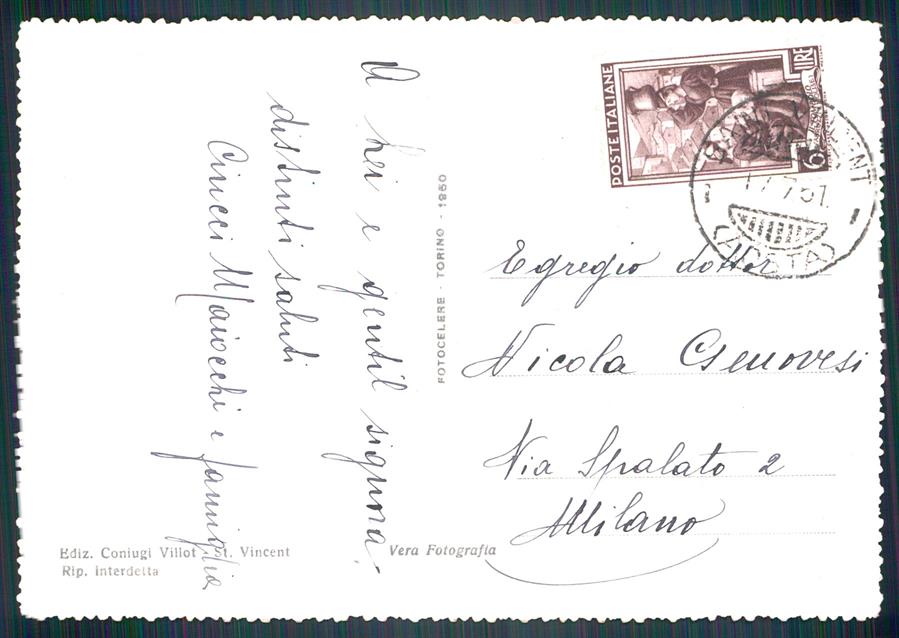 A Lei e gentil signora,
distinti saluti
Cincci Maiocchi e famiglia
FOTOCELERE - TORINO - 1950
POSTE ITALIANE
LIRE
6
17.7.51.
(AOSTA)
Egregio dottor
Nicola Genovesi
Via Spalato 2
Milano
Ediz. Coniugi Villot St. Vincent
Rip. interdetta
Vera Fotografia